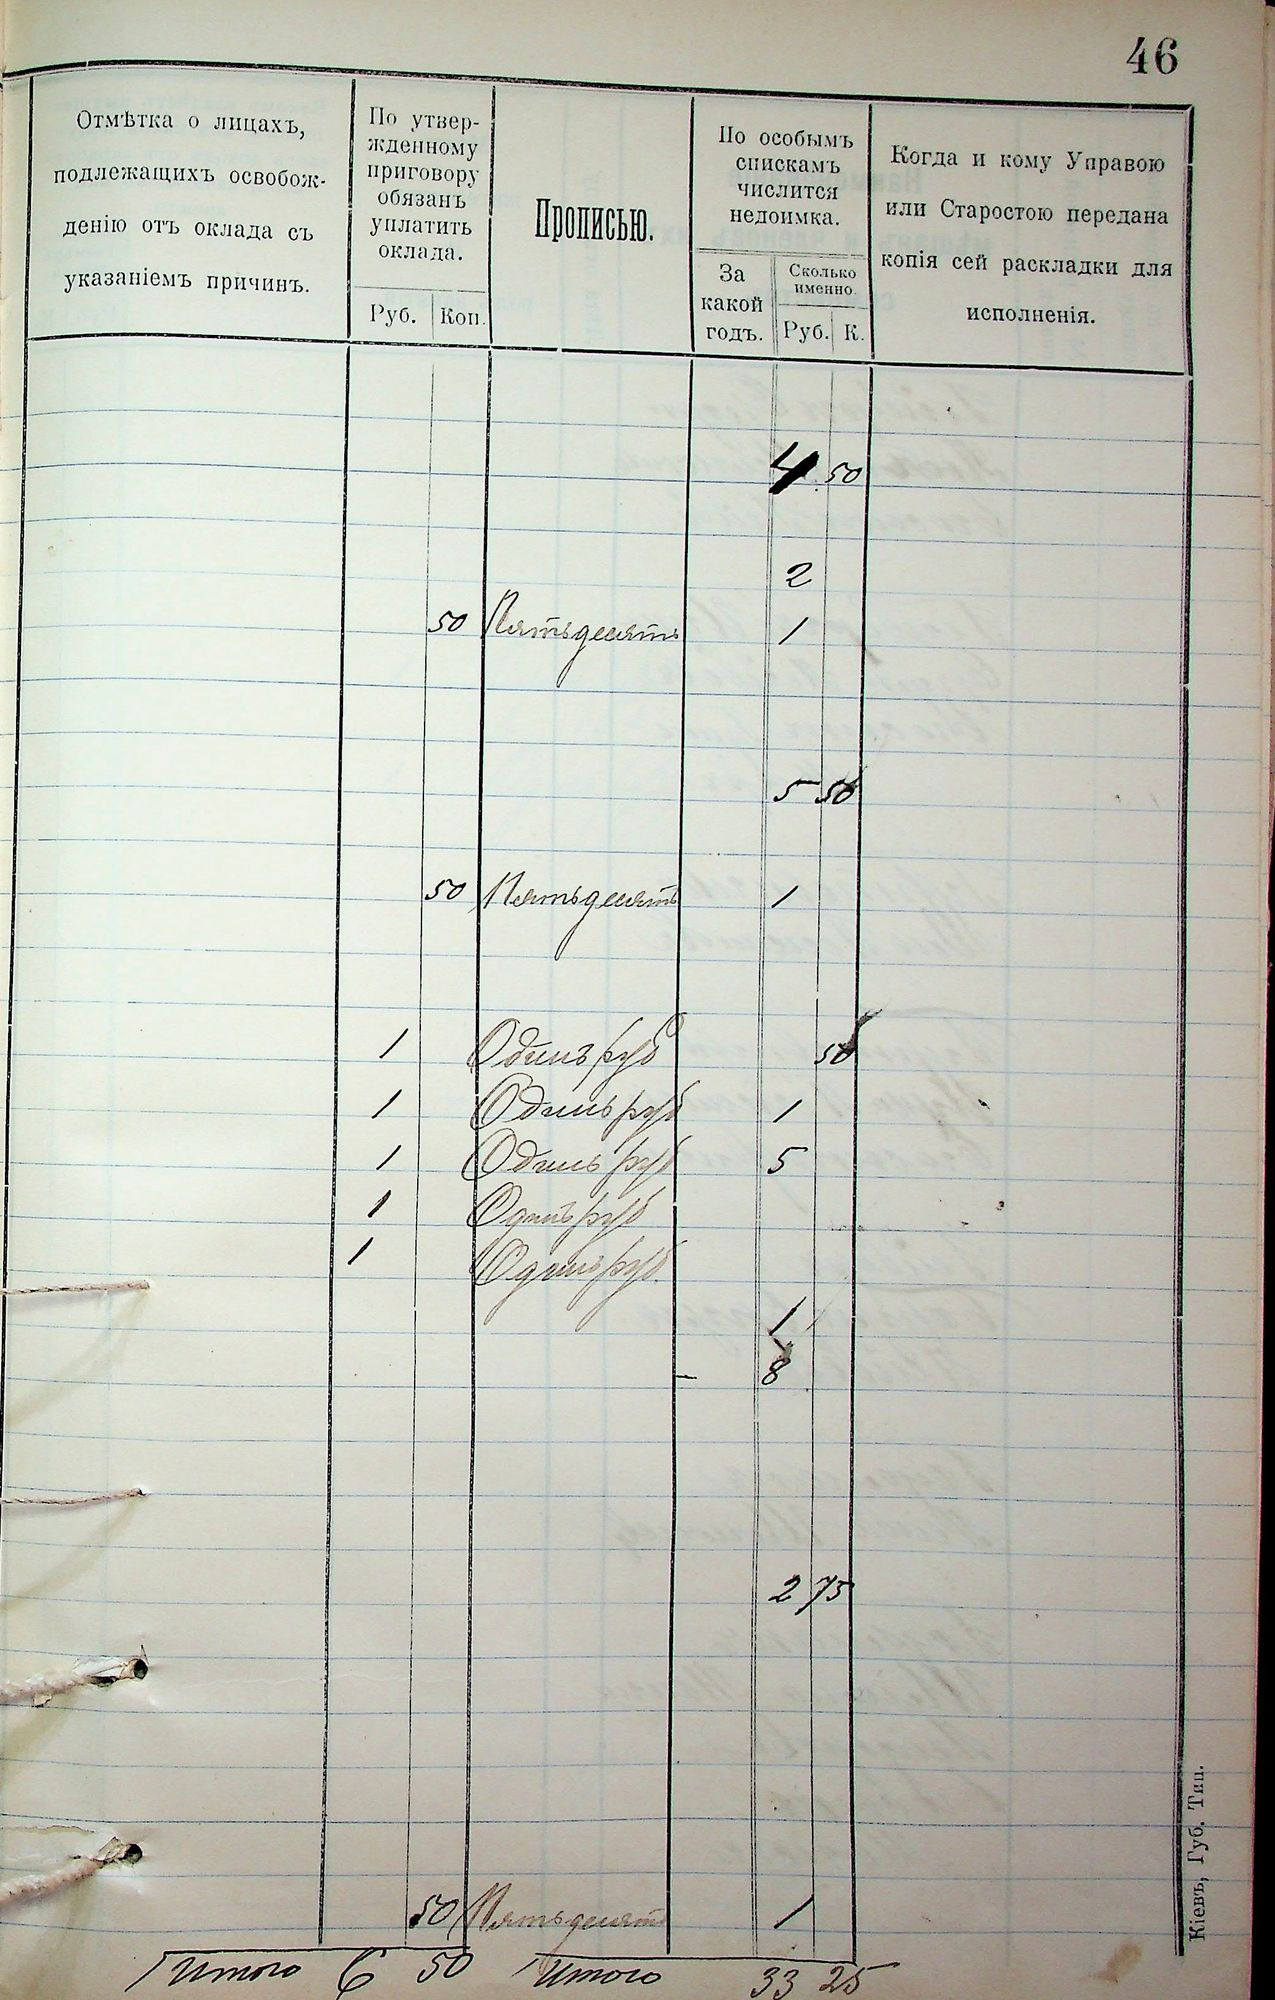 46
Отмѣтка о лицахъ,
подлежащихъ освобож-
денію отъ оклада съ
указаніемъ причинъ.
По утвер-
жденному
приговору
обязанъ
уплатить
оклада.
Руб. Коп.
Прописью.
По особымъ
спискамъ
числится
недоимка.
За
какой
годъ.
Сколько
именно.
Руб. К.
Когда и кому Управою
или Старостою передана
копія сей раскладки для
исполненія.
4 50
2
50 Пятьдесятъ 1
5 50
50 Пятьдесятъ 1
1 Одинъ руб 50
1 Одинъ руб 1
1 Одинъ руб 5
1 Одинъ руб
1 Одинъ руб.
1
8
2 75
50 Пятьдесятъ 1
Итого 6 50 Итого 33 25
Кіевъ, Губ. Тип.